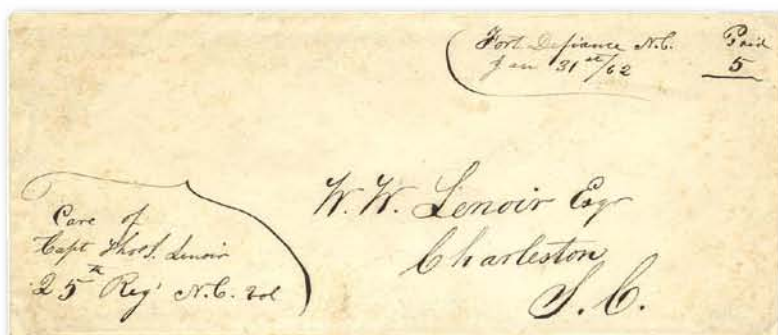 Fort Defiance N.C.
Jan 31st/62
Paid
5
W. W. Lenoir Esqr
Charleston
S. C.
Care of
Capt Thos. I. Lenoir
25th Reg' N.C. Vol